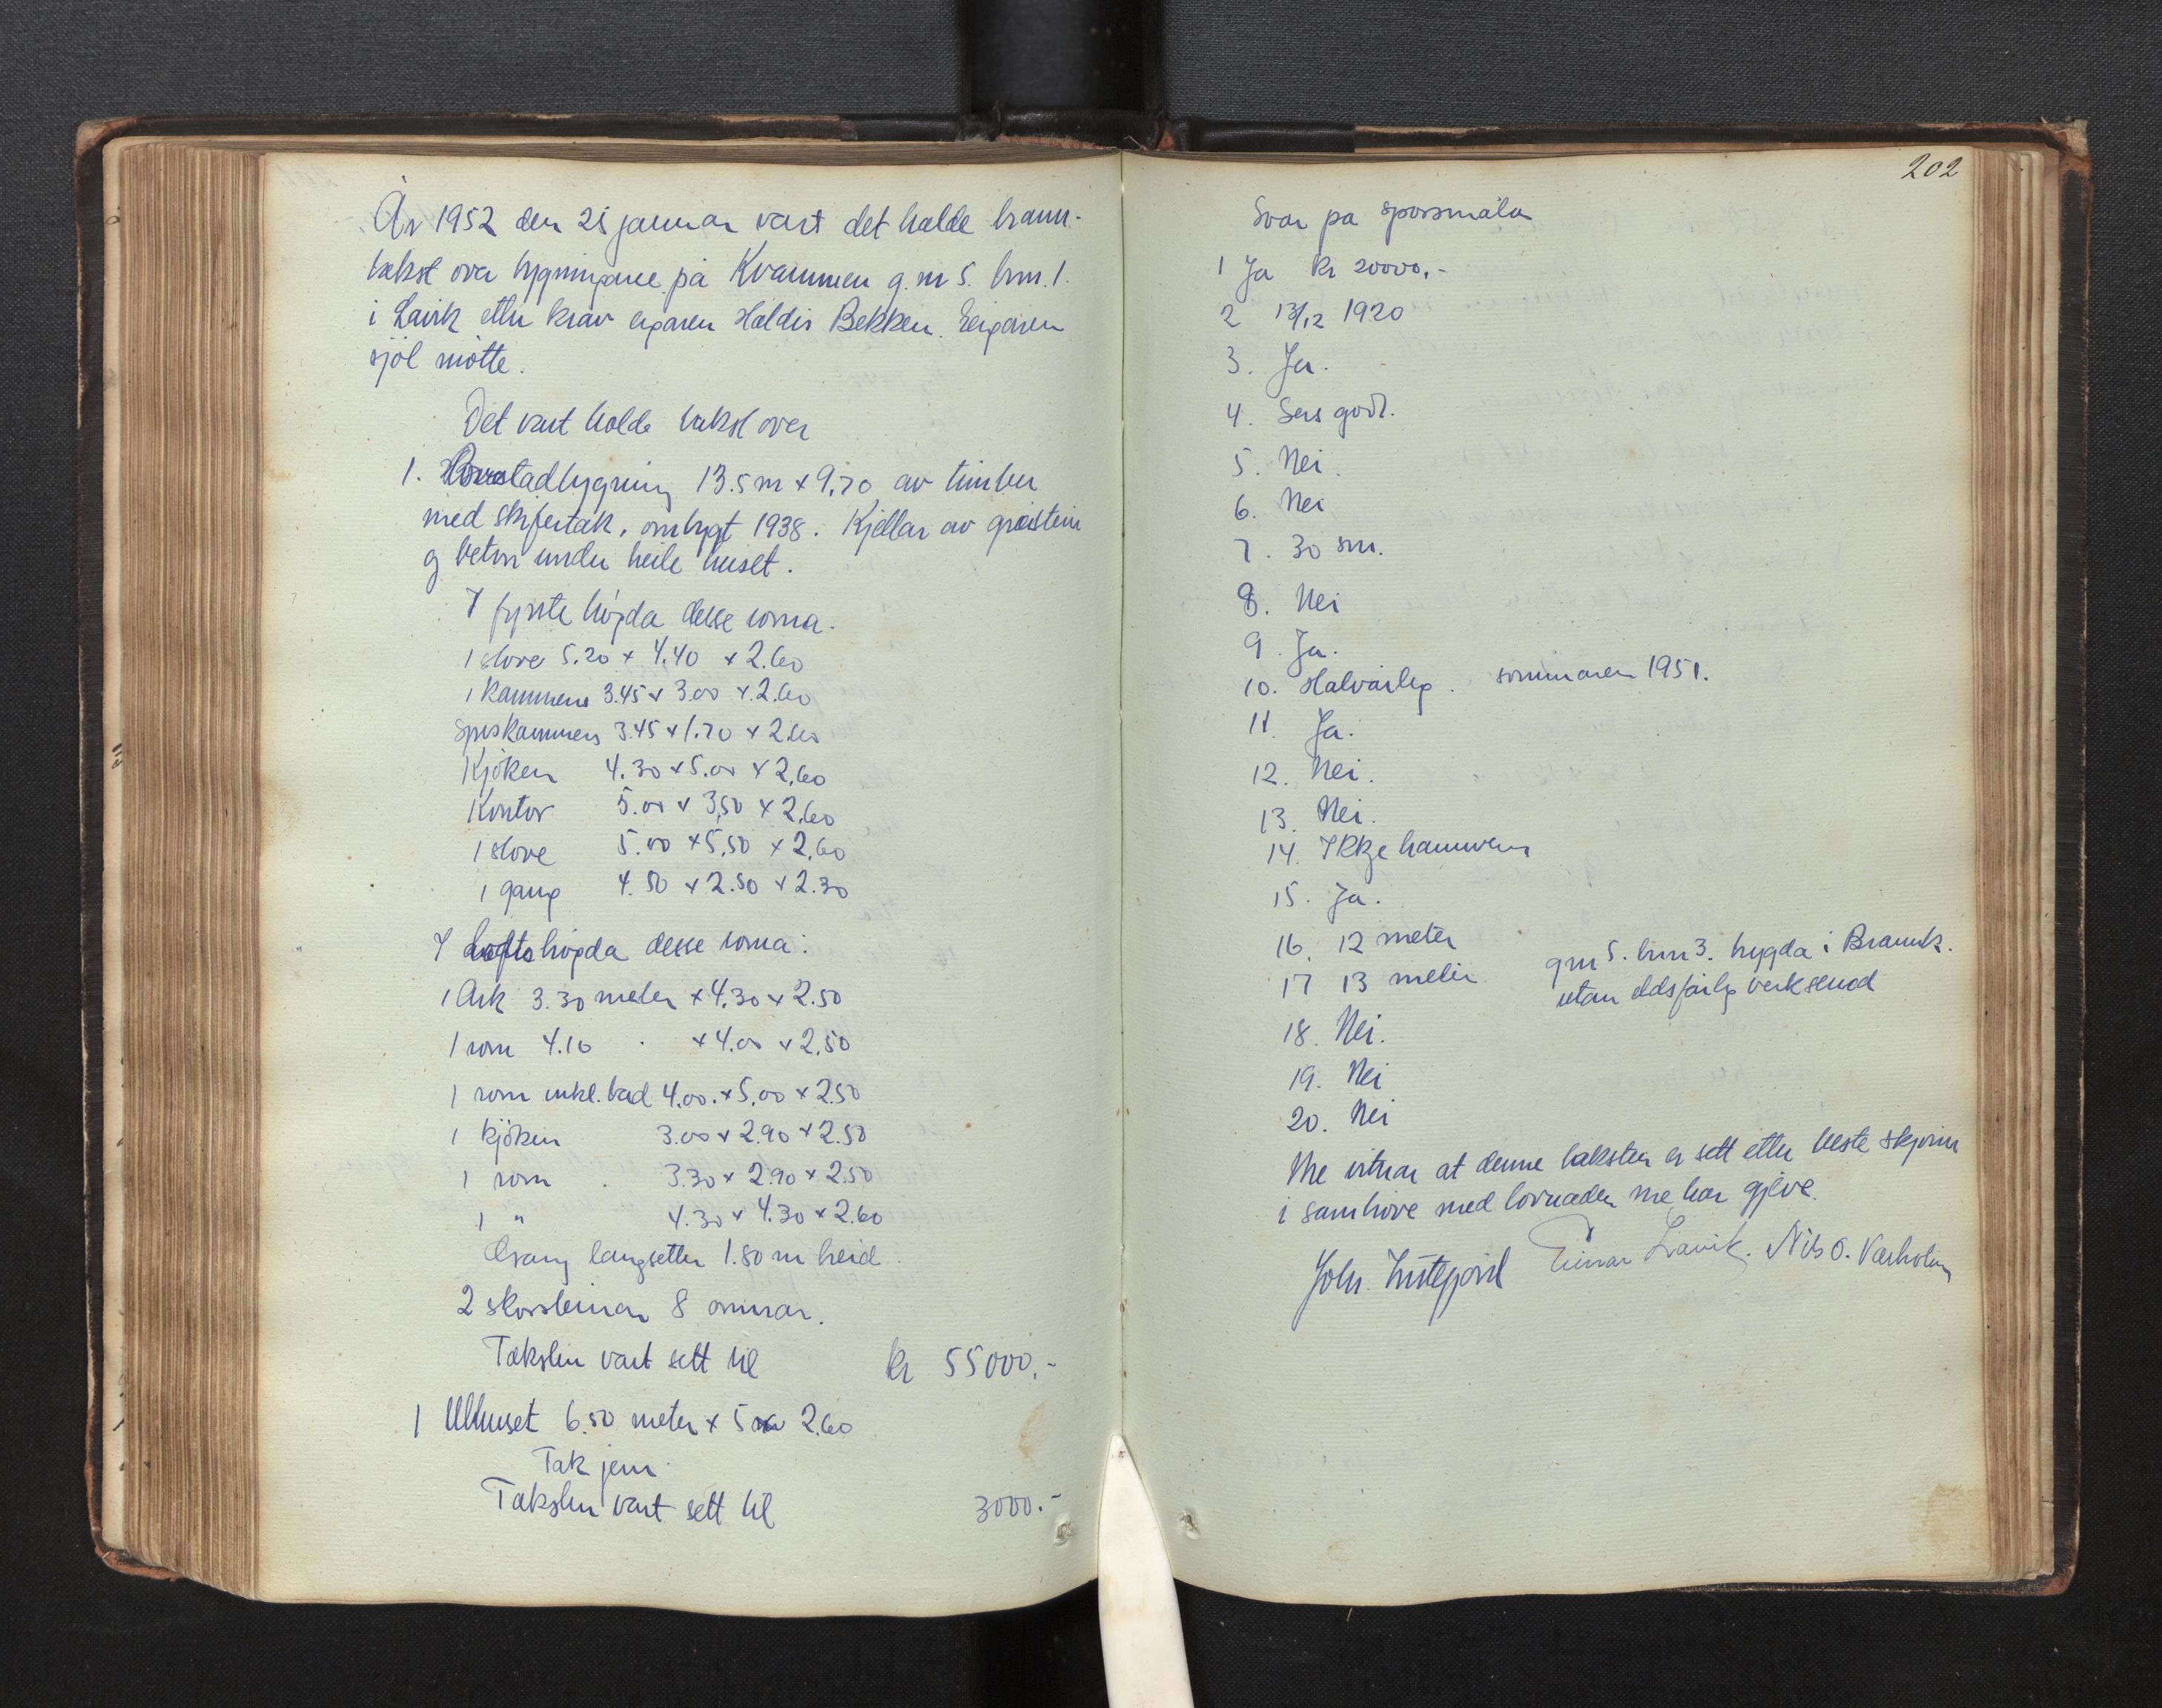 År 1952 den 25 januar vart det halde brann-
takst over bygningane på Kvammen g.nr 5. brn. 1.
i Lavik etter krav eigaren Haldis Bekken. Eigaren
sjöl mötte.
Det vart halde takst over
1. Våvestadbygning 13.5 m x 9,70 av timber
med skifertak, ombygt 1938. Kjellar av gråstein
og beton under heile huset.
I fyrste högda desse roma.
1 stove 5.20 x 4.40 x 2.60
1 kammers 3.45 x 3.00 x 2.60
Speskammers 3.45 x 1.70 x 2.60
Kjöken 4.30 x 5.00 x 2,60
Kontor 5.00 x 3,50 x 2,60
1 stove 5.00 x 5,50 x 2,60
1 gang 4.50 x 2.50 x 2.30
I loftshögda desse roma:
1 Ark 3.30 meter x 4.30 x 2.50
1 rom 4.10 . x 4.00 x 2.50
1 rom inkl. bad 4.00. x 5,00 x 2.50
1 kjöken 3.00 x 2.90 x 2.50
1 rom . 3.30 x 2.90 x 2.50
1 " 4.30 x 4.30 x 2.60
langsetter 1.80 m breid
2 skorsteinar 8 omnar.
Taksten vart sett til kr 55000.-
1 Ulhuset 6.50 meter x 5 2.60
Tak jern
Taksten vart sett til 3000.-
202
Svar på spörsmåla
1 Ja kr 20000.-
2 13/12 1920
3. Ja.
4. Sers godt.
5. Nei.
6. Nei
7. 30 sm.
8. Nei
9. Ja.
10. Halvårleg. sommaren 1951.
11. Ja.
12. Nei.
13. Nei.
14. Ikkje brannvern
15. Ja.
16. 12 meter
17 13 meter
gnr 5. brn 3. trygda i Brannk.
utan eldsfarleg verksemd
18. Nei.
19. Nei
20. Nei
Me vitnar at denne taksten er sett etter beste skjönn
i samhöve med lovnaden me har gjeve.
John Einar Lavik. Nils O. Varholm